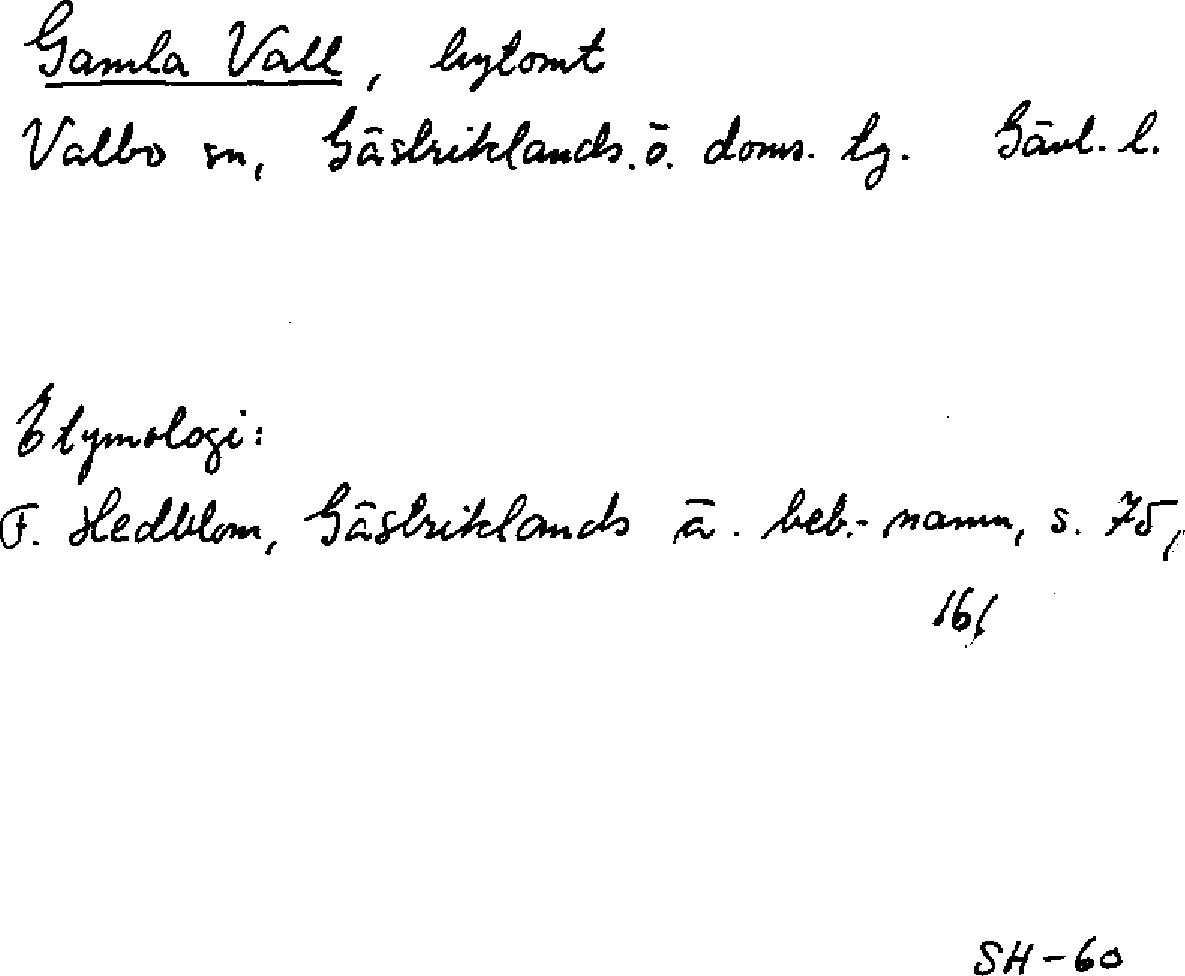 Gamla Vall, bytomt
Valbo sn, Gästriklands ö. doms. tg. Gävl. l.
Etymologi:
F. Hedblom, Gästriklands ä. beb.-namn, s. 75,
161
SH-60